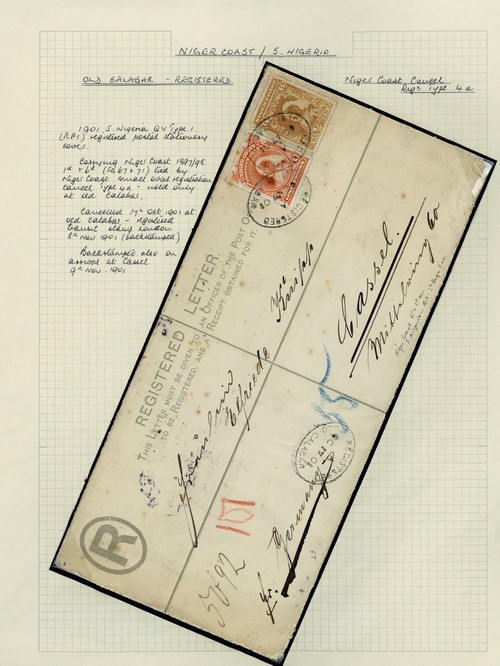 NIGER COAST / S. NIGERIA
OLD CALABAR - REGISTERED
Niger Coast Cancel
Regs Type 4a
1901 S. Nigeria QV Type 1
(RP1) registered postal stationery
cover.
Carrying Niger Coast 1897/98
1d + 6d (SG 67 + 71) tied by
Niger Coast small oval registration
cancel Type 4A - used only
at old Calabar.
Cancelled 17th Oct 1901 at
old Calabar - registered
transit stamp London
8th Nov 1901 (backstamped)
Backstamped also on
arrival at Cassel
9th Nov. 1901
REGISTERED LETTER.
THIS LETTER MUST BE GIVEN TO AN OFFICER OF THE POST OFFICE
TO BE REGISTERED, AND A RECEIPT OBTAINED FOR IT.
REGISTERED
Fräulein
Elfriede Knipp
Cassel.
Germany
REGISTERED
OC 17 01
OLD CALABAR
R
5692